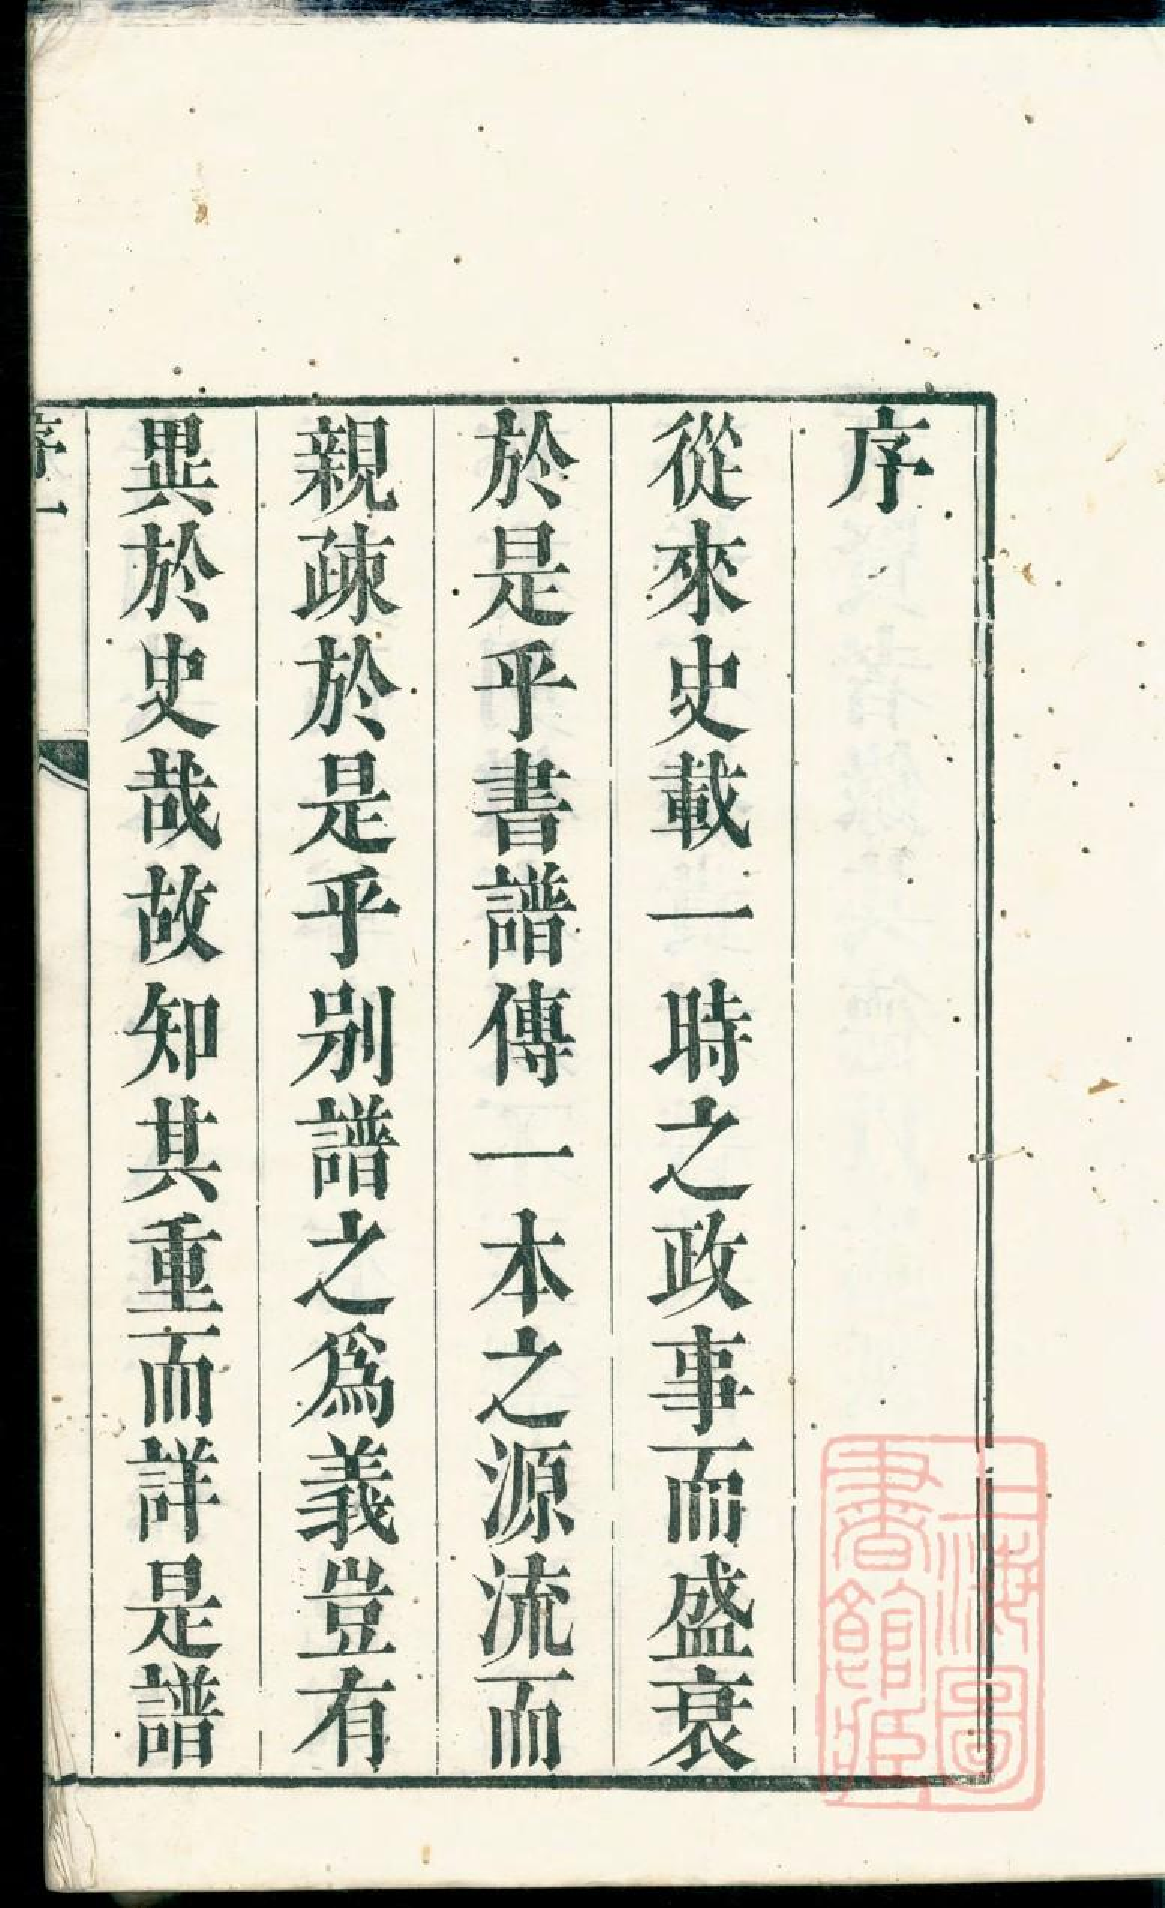 序
從來史載一時之政事而盛衰
於是乎書譜傳一本之源流而
親疎於是乎别譜之爲義豈有
異於史哉故知其重而詳是譜
序一
上海圖
書館藏